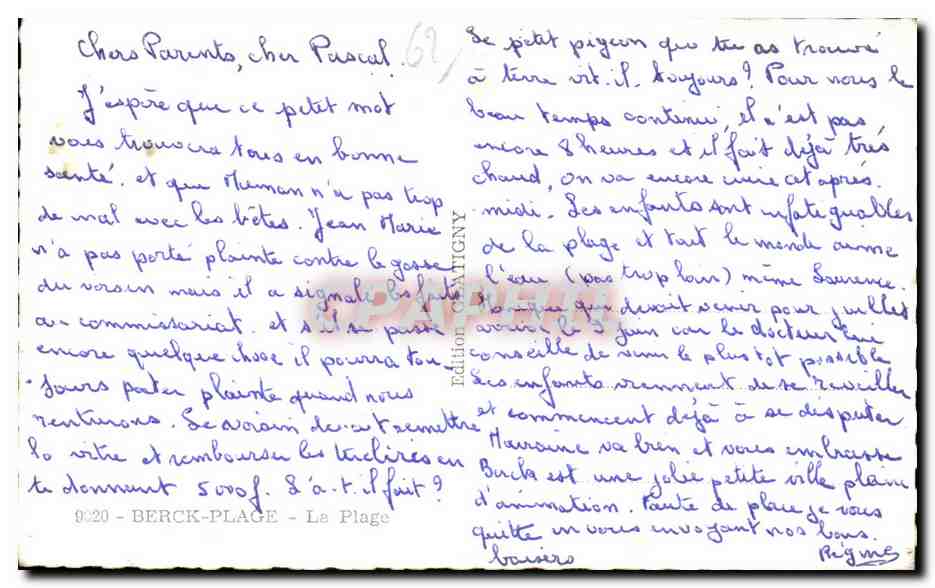 Chers Parents, cher Pascal.
J'espère que ce petit mot
vous trouvera tous en bonne
santé. et que Maman n'a pas trop
de mal avec les bêtes. Jean Marie
n'a pas porté plainte contre le gosse
du voisin mais il a signalé les faits
au commissariat. et s'il se passe
encore quelque chose il pourra tou-
jours porter plainte quand nous
rentrerons. Le voisin devait remettre
la vitre et rembourser les tirelires en
te donnant 5000f. L'a-t-il fait ?
9020 - BERCK-PLAGE - La Plage
Edition CHATIGNY
62
Le petit pigeon que tu as trouvé
à terre vit-il toujours ? Pour nous le
beau temps continu, il n'est pas
encore 8 heures et il fait déjà très
chaud, on va encore cuire cet après.
midi. Les enfants sont infatiguables
de la plage et tout le monde aime
l'eau (pas trop loin) même Laurence.
qui devait venir pour juillet
arrive le juin car le docteur lui
conseille de venir le plus tot possible
Les enfants viennent de se reveiller
et commencent déjà à se disputer
va bien et vous embrasse
Berck est une jolie petite ville plaine
d'animation. Faute de place je vous
quitte en vous envoyant nos bons.
baisers Régine